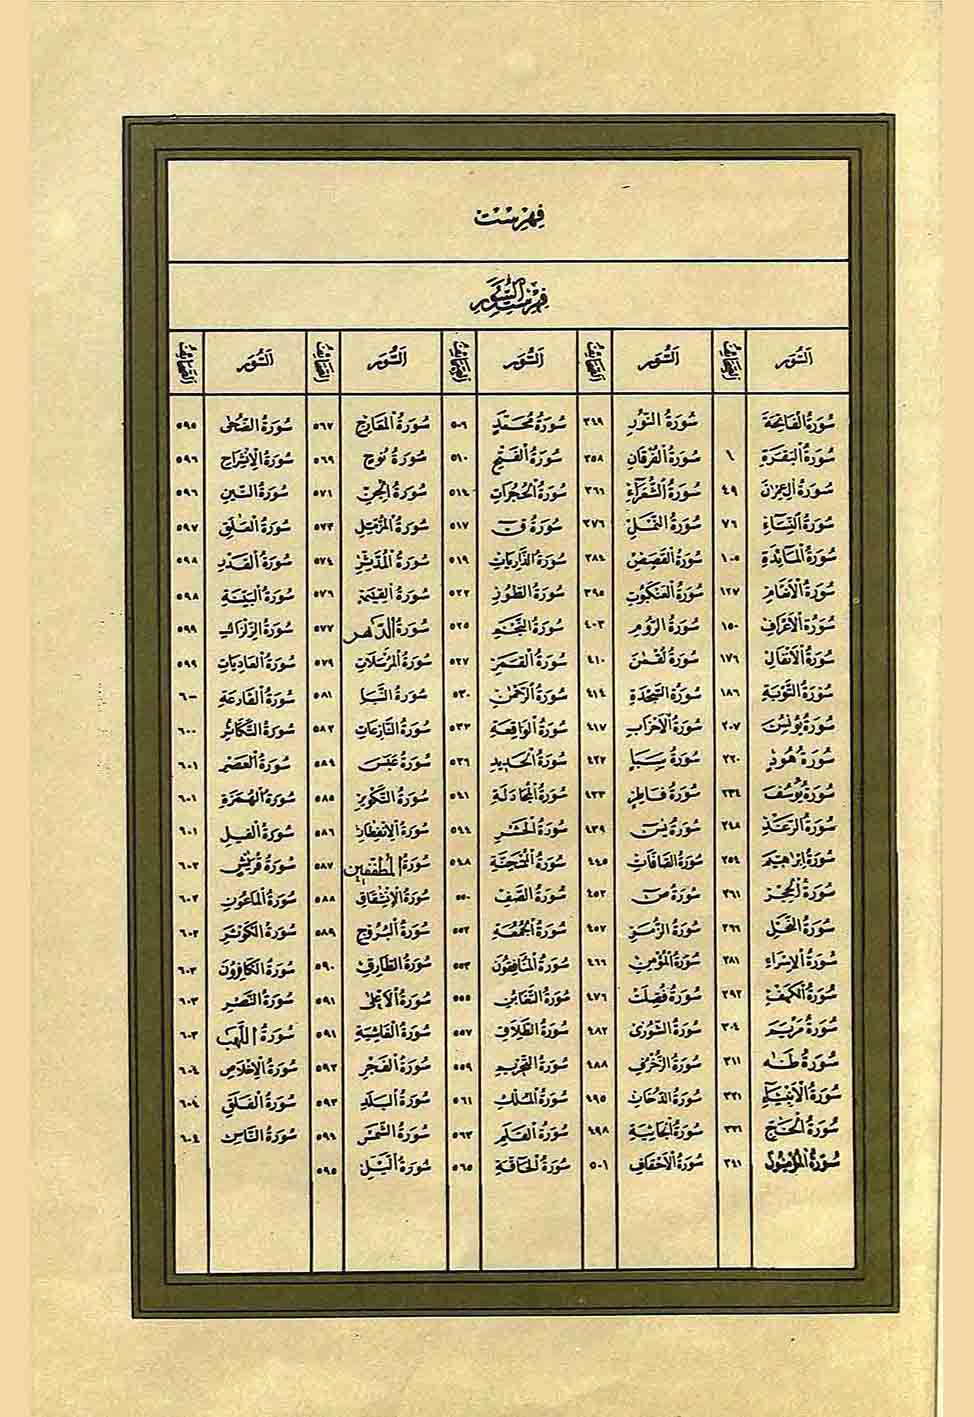 فهرست
فهرست السور
السور الصحائف السور الصحائف السور الصحائف السور الصحائف السور الصحائف
سورة الفاتحة سورة النور ٣٤٩ سورة محمد ٥٠٦ سورة المعارج ٥٦٧ سورة الضحى ٥٩٥
سورة البقرة ١ سورة الفرقان ٣٥٨ سورة الفتح ٥١٠ سورة نوح ٥٦٩ سورة الانشراح ٥٩٦
سورة ال عمران ٤٩ سورة الشعراء ٣٦٦ سورة الحجرات ٥١٤ سورة الجن ٥٧١ سورة التين ٥٩٦
سورة النساء ٧٦ سورة النمل ٣٧٦ سورة ق ٥١٧ سورة المزمل ٥٧٣ سورة العلق ٥٩٧
سورة المائدة ١٠٥ سورة القصص ٣٨٤ سورة الذاريات ٥١٩ سورة المدثر ٥٧٤ سورة القدر ٥٩٨
سورة الانعام ١٢٧ سورة العنكبوت ٣٩٥ سورة الطور ٥٢٢ سورة القيمة ٥٧٦ سورة البينة ٥٩٨
سورة الاعراف ١٥٠ سورة الروم ٤٠٣ سورة النجم ٥٢٥ سورة الدهر ٥٧٧ سورة الزلزال ٥٩٩
سورة الانفال ١٧٦ سورة لقمن ٤١٠ سورة القمر ٥٢٧ سورة المرسلات ٥٧٩ سورة العاديات ٥٩٩
سورة التوبة ١٨٦ سورة السجدة ٤١٤ سورة الرحمن ٥٣٠ سورة النبا ٥٨١ سورة القارعة ٦٠٠
سورة يونس ٢٠٧ سورة الاحزاب ٤١٧ سورة الواقعة ٥٣٣ سورة النازعات ٥٨٢ سورة التكاثر ٦٠٠
سورة هود ٢٢٠ سورة سبا ٤٢٧ سورة الحديد ٥٣٦ سورة عبس ٥٨٤ سورة العصر ٦٠١
سورة يوسف ٢٣٤ سورة فاطر ٤٣٣ سورة المجادلة ٥٤١ سورة التكوير ٥٨٥ سورة الهمزة ٦٠١
سورة الرعد ٢٤٨ سورة يس ٤٣٩ سورة الحشر ٥٤٤ سورة الانفطار ٥٨٦ سورة الفيل ٦٠١
سورة ابراهيم ٢٥٤ سورة الصافات ٤٤٥ سورة الممتحنة ٥٤٨ سورة المطففين ٥٨٧ سورة قريش ٦٠٢
سورة الحجر ٢٦١ سورة ص ٤٥٢ سورة الصف ٥٥٠ سورة الانشقاق ٥٨٨ سورة الماعون ٦٠٢
سورة النحل ٢٦٦ سورة الزمر ٤٥٧ سورة الجمعة ٥٥٢ سورة البروج ٥٨٩ سورة الكوثر ٦٠٢
سورة الاسراء ٢٨١ سورة المؤمن ٤٦٦ سورة المنافقون ٥٥٣ سورة الطارق ٥٩٠ سورة الكافرون ٦٠٣
سورة الكهف ٢٩٢ سورة فصلت ٤٧٦ سورة التغابن ٥٥٥ سورة الاعلى ٥٩١ سورة النصر ٦٠٣
سورة مريم ٣٠٤ سورة الشورى ٤٨٢ سورة الطلاق ٥٥٧ سورة الغاشية ٥٩١ سورة اللهب ٦٠٣
سورة طه ٣١١ سورة الزخرف ٤٨٨ سورة التحريم ٥٥٩ سورة الفجر ٥٩٢ سورة الاخلاص ٦٠٤
سورة الانبياء ٣٢١ سورة الدخان ٤٩٥ سورة الملك ٥٦١ سورة البلد ٥٩٣ سورة الفلق ٦٠٤
سورة الحج ٣٣١ سورة الجاثية ٤٩٨ سورة القلم ٥٦٣ سورة الشمس ٥٩٤ سورة الناس ٦٠٤
سورة المؤمنون ٣٤١ سورة الاحقاف ٥٠١ سورة الحاقة ٥٦٥ سورة اليل ٥٩٥